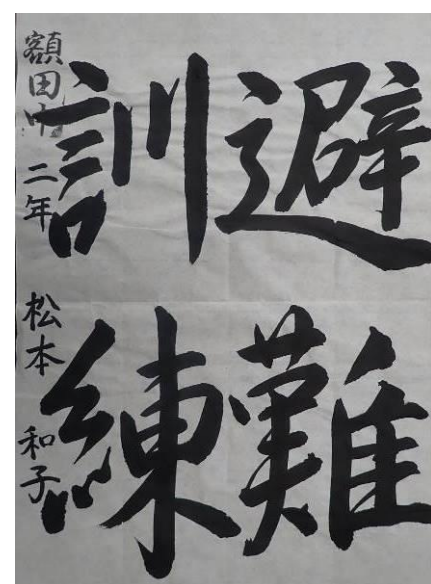 避難
訓練
額田中 二年 松本 和子